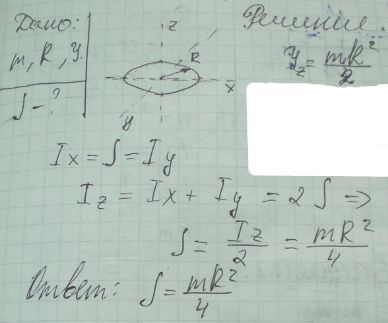 Дано:
m, R, Y.
J - ?
z
R
x
y
Решение.
Y_z = mR²/2
Ix = J = Iy
Iz = Ix + Iy = 2J =>
J = Iz/2 = mR²/4
Ответ: J = mR²/4